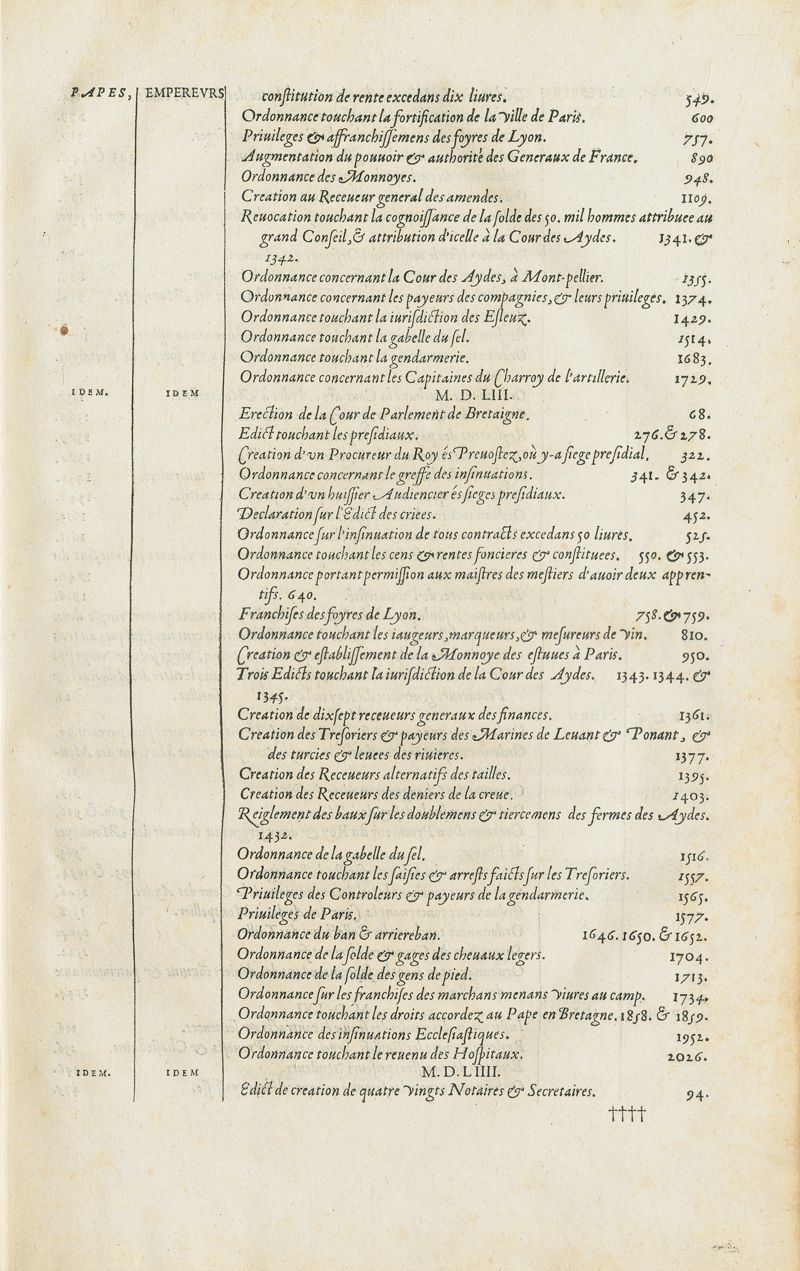 PAPES, EMPEREVRS conſtitution de rente excedans dix liures. 549.
Ordonnance touchant la fortification de la ville de Paris. 600
Priuileges & affranchiſſemens des foyres de Lyon. 757.
Augmentation du pouuoir & authorité des Generaux de France. 890
Ordonnance des Monnoyes. 948.
Creation au Receueur general des amendes. 1109.
Reuocation touchant la cognoiſſance de la ſolde des 50. mil hommes attribuee au
grand Conſeil, & attribution d'icelle à la Cour des Aydes. 1341. &
1342.
Ordonnance concernant la Cour des Aydes, à Mont-pellier. 1355.
Ordonnance concernant les payeurs des compagnies, & leurs priuileges. 1374.
Ordonnance touchant la iuriſdiction des Eſleuz. 1429.
Ordonnance touchant la gabelle du ſel. 1514.
Ordonnance touchant la gendarmerie. 1683.
Ordonnance concernant les Capitaines du Charroy de l'artillerie. 1729.
IDEM. IDEM M. D. LIII.
Erection de la Cour de Parlement de Bretaigne. 68.
Edict touchant les preſidiaux. 276. & 278.
Creation d'vn Procureur du Roy és Preuoſtez, où y-a ſiege preſidial. 322.
Ordonnance concernant le greffe des inſinuations. 341. & 342.
Creation d'vn huiſſier Audiencier és ſieges preſidiaux. 347.
Declaration ſur l'Edict des criees. 452.
Ordonnance ſur l'inſinuation de tous contracts excedans 50 liures. 525.
Ordonnance touchant les cens & rentes foncieres & conſtituees. 550. & 553.
Ordonnance portant permiſſion aux maiſtres des meſtiers d'auoir deux appren-
tifs. 640.
Franchiſes des foyres de Lyon. 758. & 759.
Ordonnance touchant les iaugeurs, marqueurs, & meſureurs de vin. 810.
Creation & eſtabliſſement de la Monnoye des eſtuues à Paris. 950.
Trois Edicts touchant la iuriſdiction de la Cour des Aydes. 1343. 1344. &
1345.
Creation de dixſept receueurs generaux des finances. 1361.
Creation des Treſoriers & payeurs des Marines de Leuant & Ponant, &
des turcies & leuees des riuieres. 1377.
Creation des Receueurs alternatifs des tailles. 1395.
Creation des Receueurs des deniers de la creue. 1403.
Reiglement des baux ſur les doublemens & tiercemens des fermes des Aydes.
1432.
Ordonnance de la gabelle du ſel. 1516.
Ordonnance touchant les ſaiſies & arreſts faicts ſur les Treſoriers. 1557.
Priuileges des Controleurs & payeurs de la gendarmerie. 1565.
Priuileges de Paris. 1577.
Ordonnance du ban & arriereban. 1646. 1650. & 1652.
Ordonnance de la ſolde & gages des cheuaux legers. 1704.
Ordonnance de la ſolde des gens de pied. 1713.
Ordonnance ſur les franchiſes des marchans menans viures au camp. 1734.
Ordonnance touchant les droits accordez au Pape en Bretagne. 1858. & 1859.
Ordonnance des inſinuations Eccleſiaſtiques. 1952.
Ordonnance touchant le reuenu des Hoſpitaux. 2026.
IDEM. IDEM M. D. LIIII.
Edict de creation de quatre vingts Notaires & Secretaires. 94.
††††